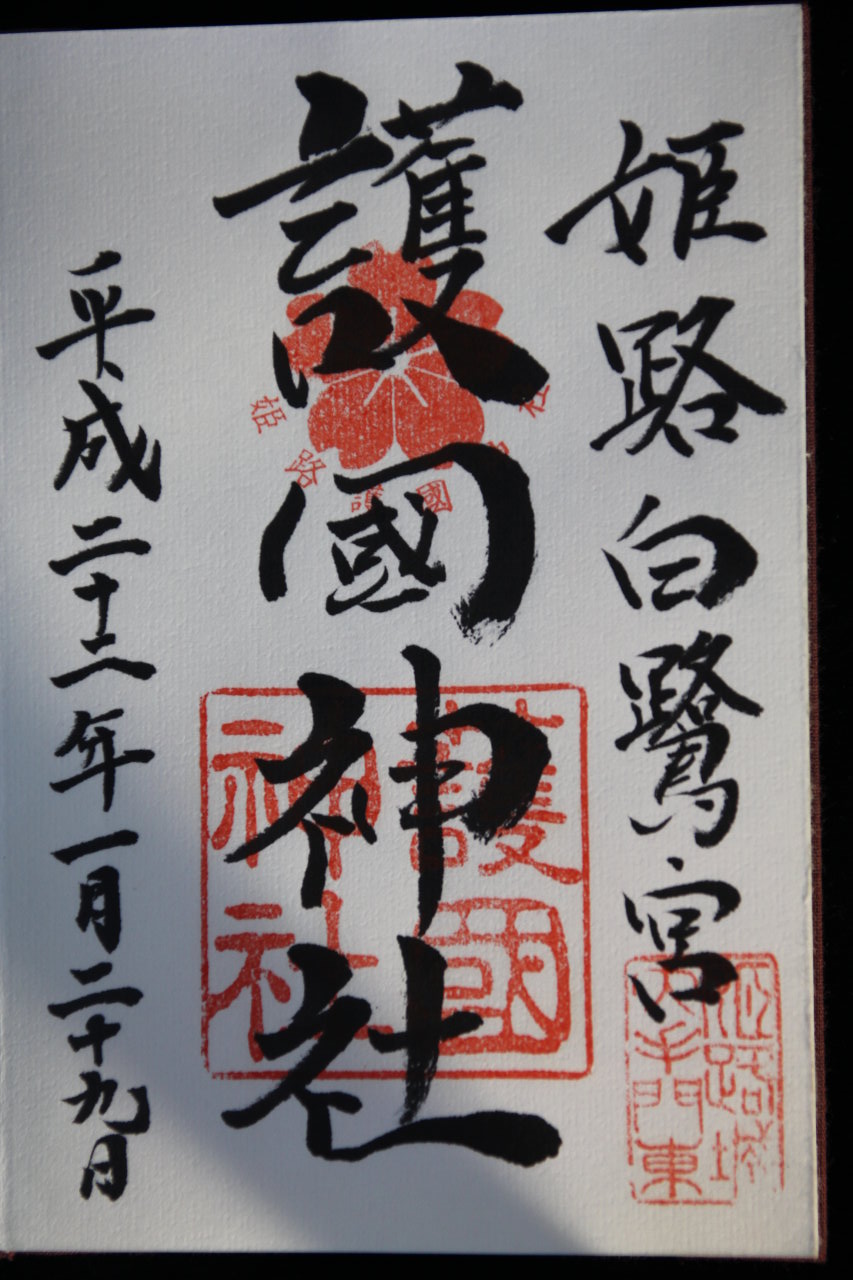 姫路白鷺宮
護國神社
平成二十二年一月二十九日
姫路護國
護國
神社
姫路城
大手門東